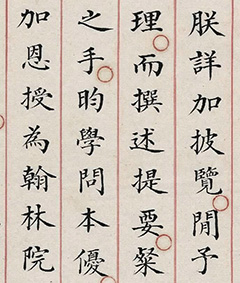 朕詳加披覽閒予
理而撰述提要粲
之手昀學問本優
加恩授為翰林院